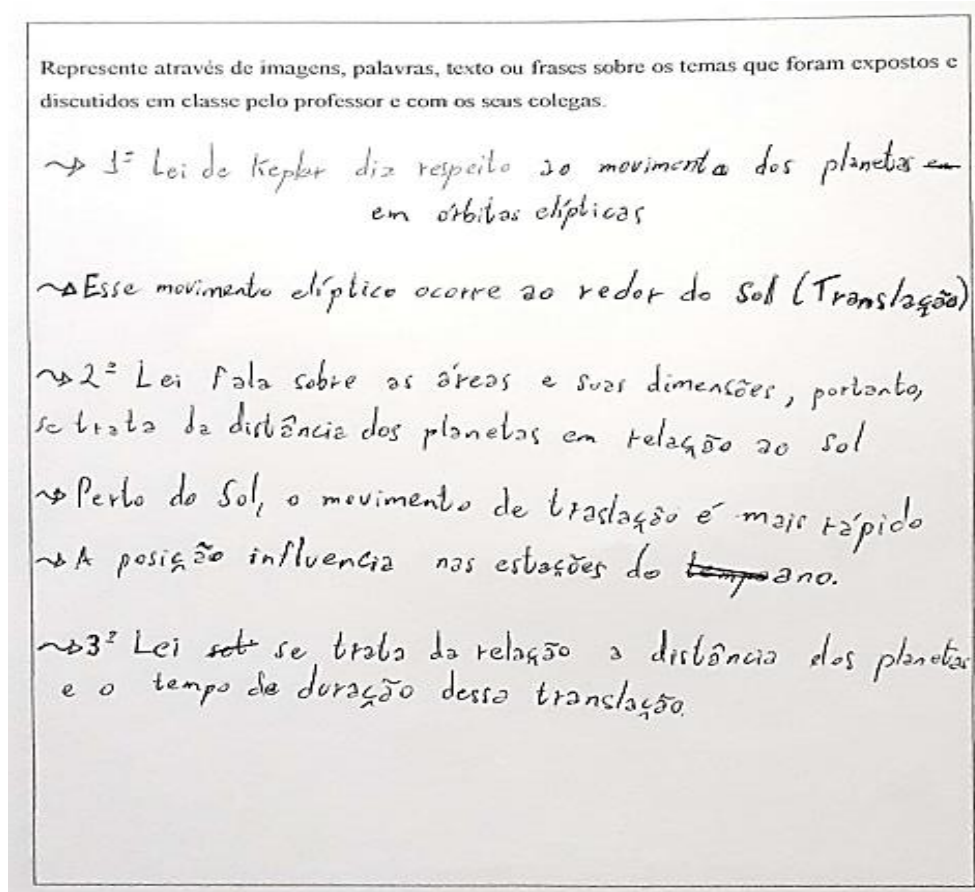 Represente através de imagens, palavras, texto ou frases sobre os temas que foram expostos e
discutidos em classe pelo professor e com os seus colegas.
↝ 1ª Lei de Kepler diz respeito ao movimento dos planetas em
em órbitas elípticas
↝ Esse movimento elíptico ocorre ao redor do Sol (Translação)
↝ 2ª Lei fala sobre as áreas e suas dimensões, portanto,
se trata da distância dos planetas em relação ao Sol
↝ Perto do Sol, o movimento de traslação é mais rápido
↝ A posição influencia nas estações do tempo ano.
↝ 3ª Lei sob se trata da relação a distância dos planetas
e o tempo de duração dessa translação.